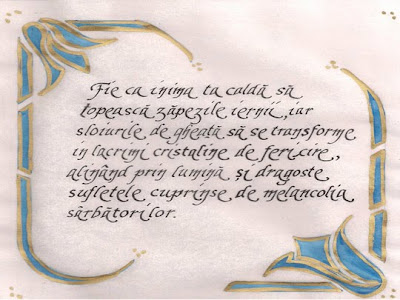 Fie ca inima ta caldă să
topească zăpezile iernii, iar
sloiurile de gheață să se transforme
in lacrimi cristaline de fericire,
alinând prin lumină și dragoste
sufletele cuprinse de melancolia
sărbătorilor.